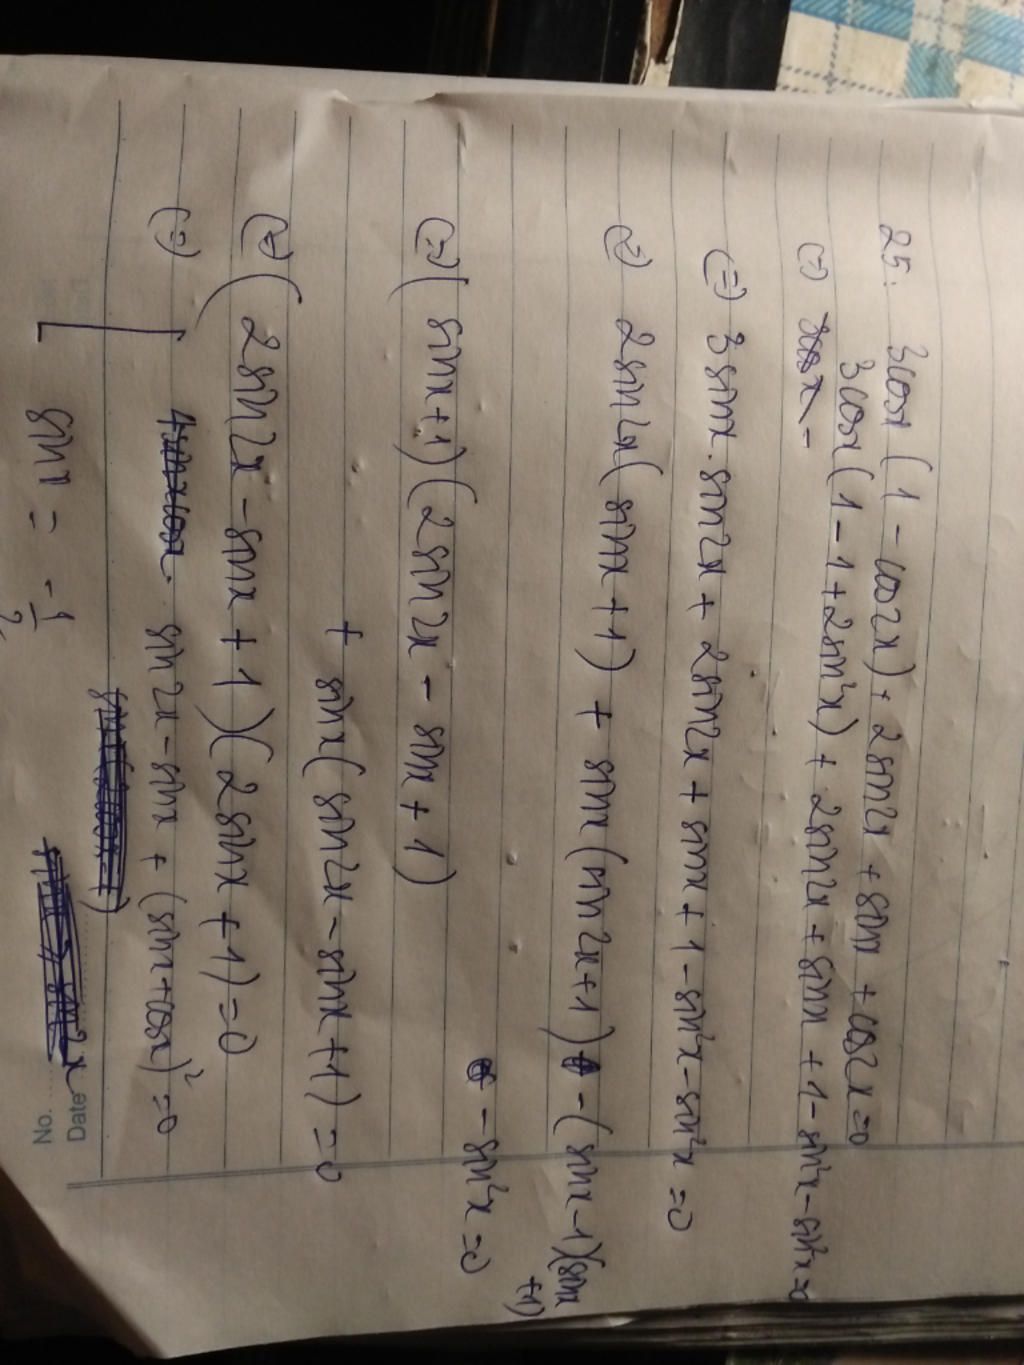 25. 3cosx (1 - cos2x) + 2sin2x + sinx + cos2x = 0
3cosx (1 - 1 + 2sin²x) + 2sin2x + sinx + 1 - sin²x - sin²x = 0
(=)
(=) 3sinx.sin2x + 2sin2x + sinx + 1 - sin²x - sin²x = 0
(=) 2sin2x (sinx + 1) + sinx (sin2x + 1) - (sinx - 1)(sinx + 1)
- sin²x = 0
(=) (sinx + 1)(2sin2x - sinx + 1)
+ sinx (sin2x - sinx + 1) = 0
(=) (2sin2x - sinx + 1)(2sinx + 1) = 0
(=) sin2x - sinx + (sinx + cosx)² = 0
sinx = -1/2
No.
Date